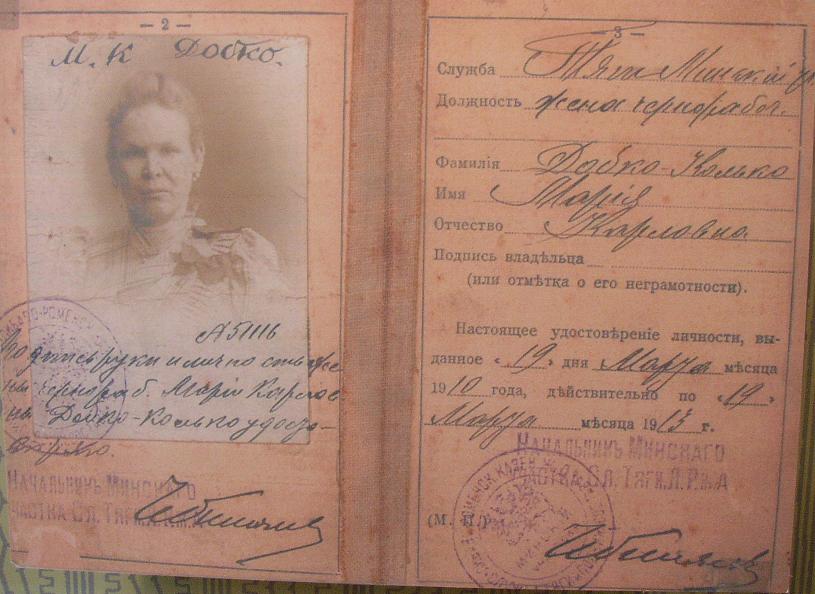 — 2 —
М. К Добко.
А 51116
Подпись руки и личность же
чернораб. Маріи Карлов
Добко-Колько удосто-
веряю.
Начальникъ Минскаго
Участка Сл. Тяги Л. Р. ж. д.
— 3 —
Служба Тяги Минскій
Должность жена чернорабоч.
Фамилія Добко-Колько
Имя Марія
Отчество Карловна
Подпись владѣльца
(или отмѣтка о его неграмотности).
Настоящее удостовѣреніе личности, вы-
данное « 19 » дня Марта мѣсяца
1910 года, дѣйствительно по « 19 »
Марта мѣсяца 1913 г.
Начальникъ Минскаго
Участка Сл. Тяги Л. Р. ж. д.
(М. П.)